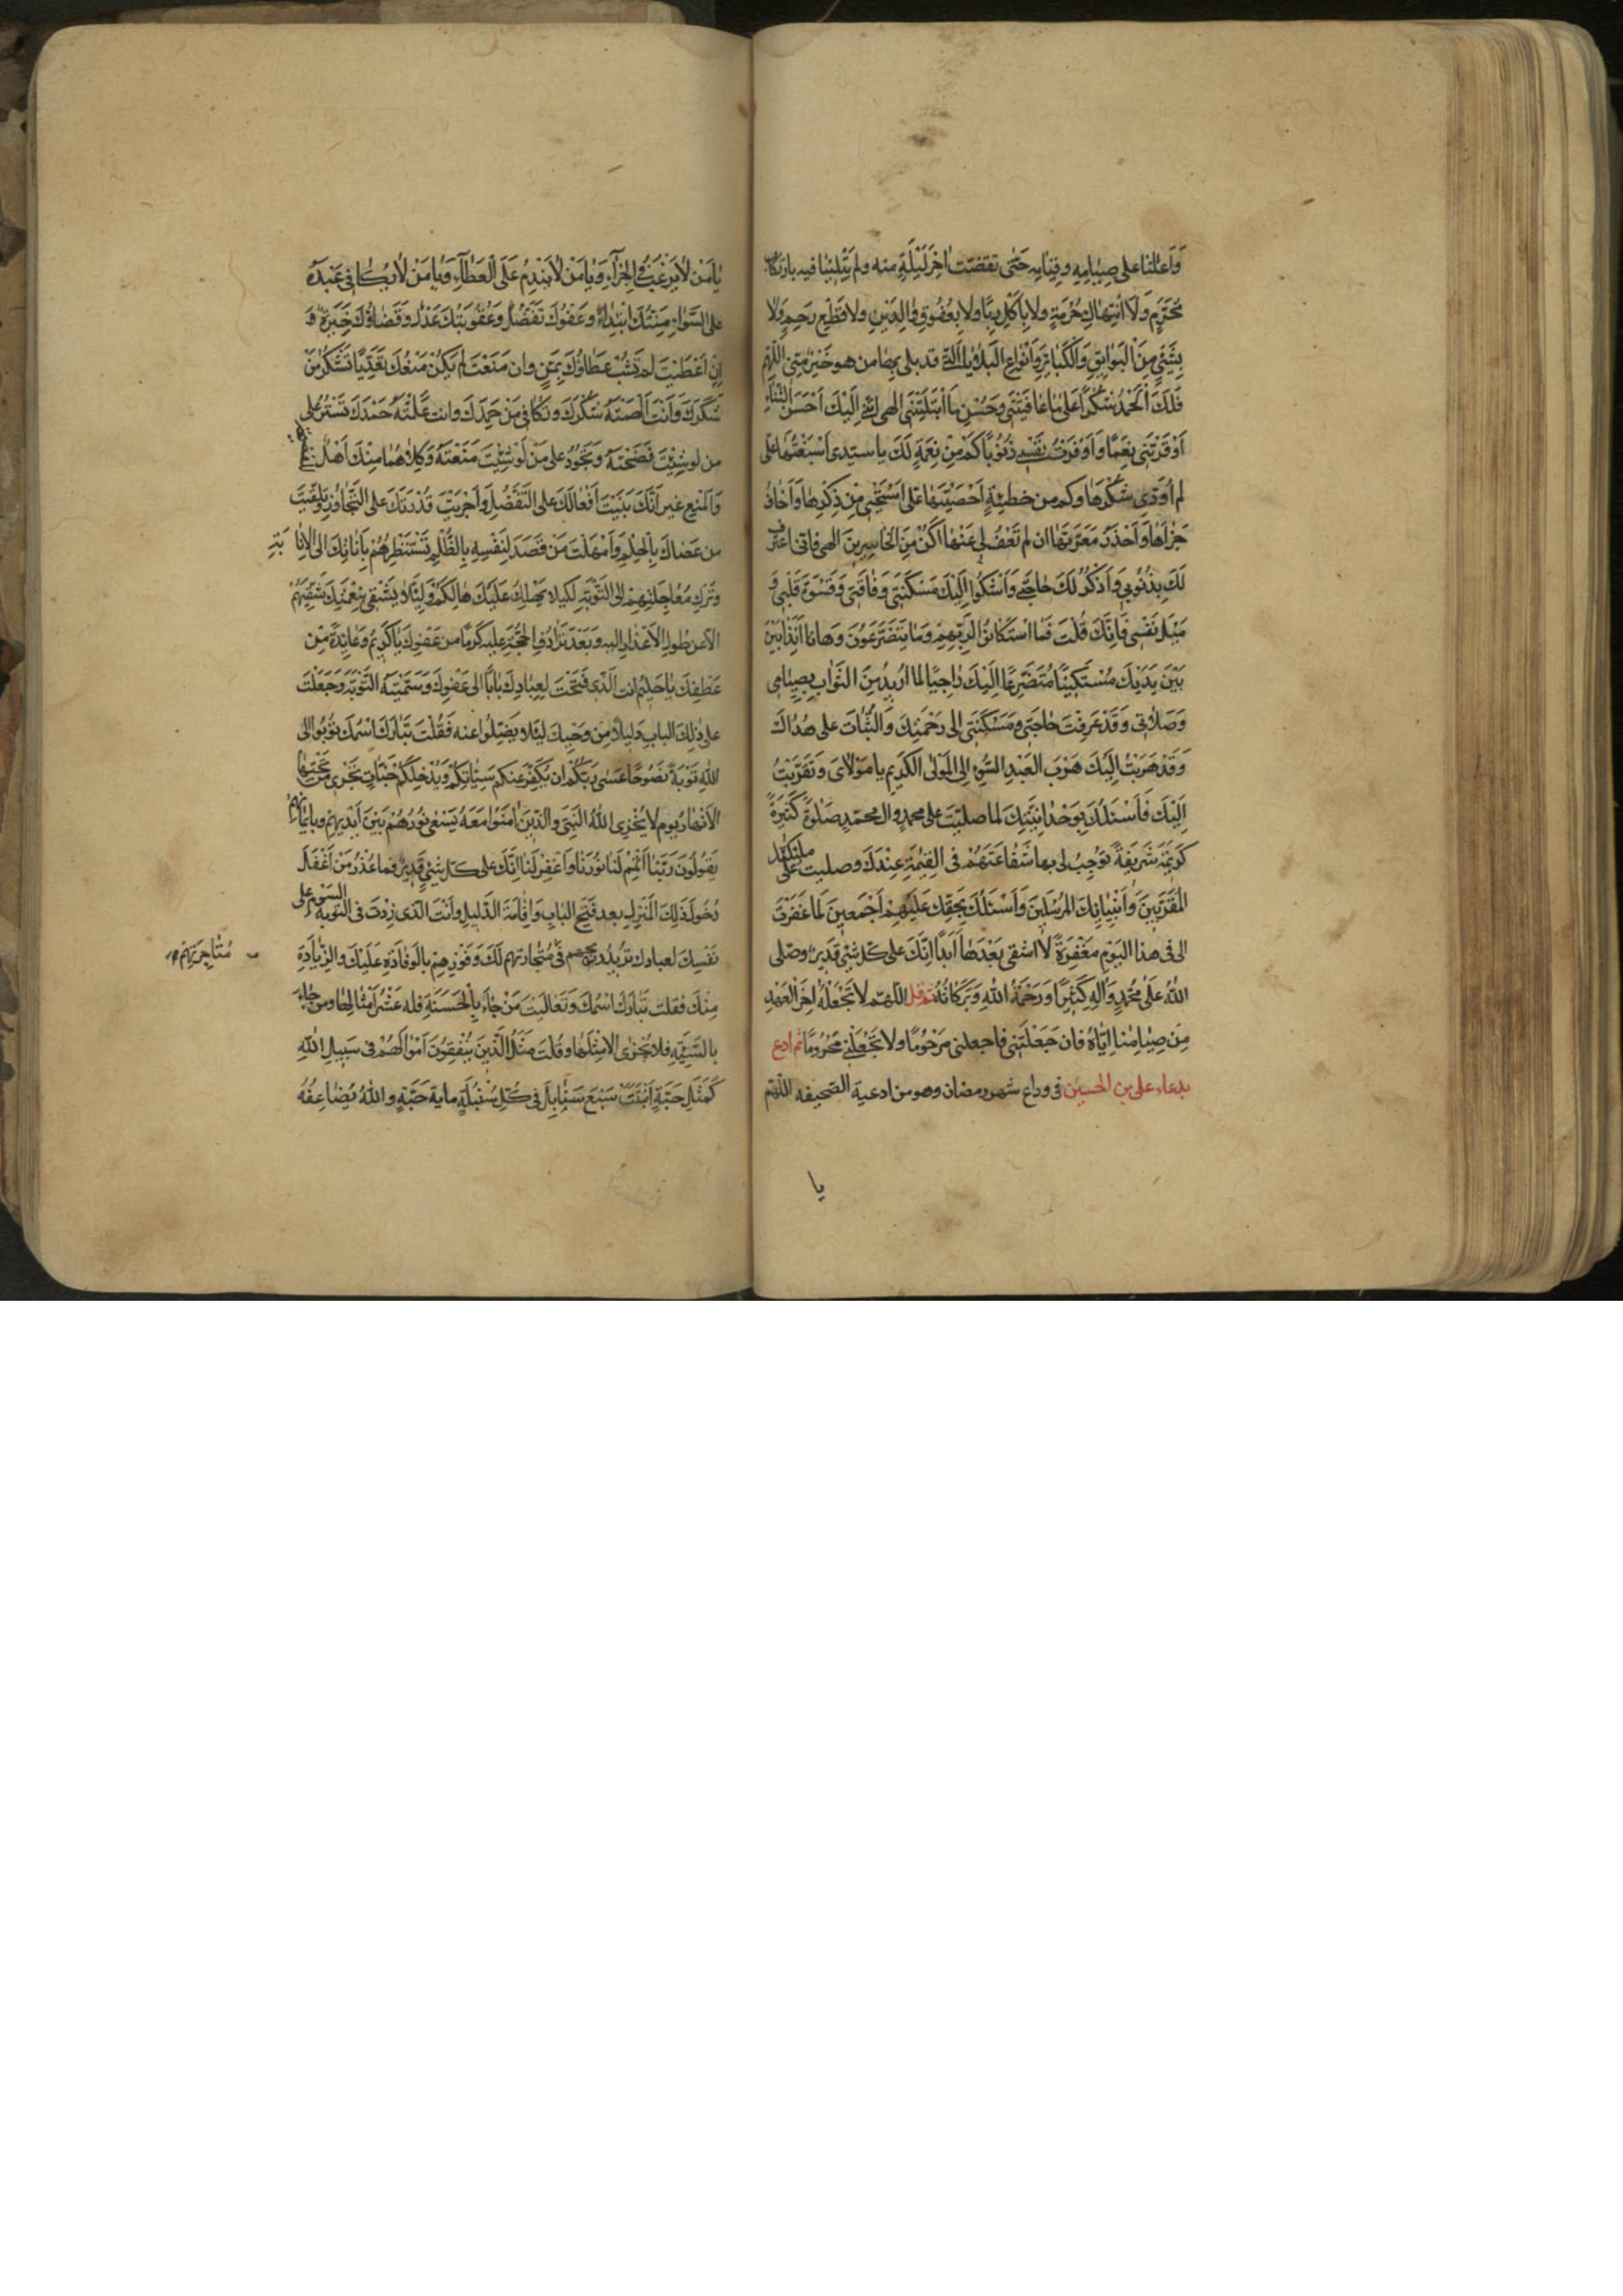 وَاَعٰاننا على صِيٰامِهِ وقِيٰامِهِ حَتّى تقضّت اٰخِرَ لَيْلَةٍ منه ولم يَبْتَلِنٰا فيه بارتكاب
مُحَرَّمٍ وَلَا انْتِهٰاكِ حُرْمَةٍ ولا بِاَكْلِ رِبًا ولا بِعُقُوقِ وٰالِدَيْنِ ولا قَطْعِ رَحِمٍ وَلَا
بِشَيْءٍ مِنَ الْبَوٰائِقِ وَالْكَبٰائِرِ وَاَنْوٰاعِ الْبَلٰايَا الَّتي قد بلى بِهٰا من هو خَيْرٌ مِنّى اللّٰهُمَّ
فَلَكَ الْحَمْدُ شُكْرًا عَلىٰ مٰا عٰافَيْتَنى وَحُسْنِ مٰا ابْتَلَيْتَنى الهى اُثنى اِلَيْكَ اَحْسَنَ الثّنٰاءِ
اَوْقَرْتَنى نِعَمًا وَاَوْقَرْتُ نَفْسى ذُنُوبًا كَمْ مِنْ نِعْمَةٍ لَكَ يا سيّدى اَسْبَغْتَهٰا عَلَىَّ
لم اُؤَدِّ شُكْرَهٰا وكم من خطيئةٍ اَحْصَيْتَهٰا عَلَىَّ اَسْتَحْيى مِنْ ذِكْرِهٰا وَاَخٰافُ
جَزٰاهٰا وَاَحْذَرُ مَعَرَّتَهٰا ان لم تَعْفُ لى عَنْهٰا اَكُنْ مِنَ الخٰاسِرينَ الهى فانّى اعترف
لَكَ بِذُنُوبى وَاَذْكُرُ لَكَ حٰاجَتى وَاَشْكُوا اِلَيْكَ مَسْكَنَتى وَفٰاقَتى وَقَسْوَةَ قَلْبى وَ
مَيْلَ نَفْسى فَاِنَّكَ قُلْتَ فَمَا اسْتَكٰانُوا لِرَبِّهِمْ وَمٰا يَتَضَرَّعُونَ وَهٰا انا اَنَذٰا بَيْنَ
بَيْنَ يَدَيْكَ مُسْتَكينًا مُتَضَرِّعًا اِلَيْكَ رٰاجِيًا لما اُريدُ مِنَ الثَّوٰابِ بِصِيٰامى
وَصَلٰاتى وَقَدْ عَرَفْتَ حٰاجَتى وَمَسْكَنَتى الى رَحْمَتِكَ وَالثَّبٰاتَ على هُدٰاكَ
وَقَدْ هَرَبْتُ اِلَيْكَ هَرَبَ العَبْدِ السُّوءِ الى المَوْلىٰ الكَريمِ يا مَوْلاىَ وَتَقَرَّبْتُ
اِلَيْكَ فَاَسْئَلُكَ بِوَحْدٰانِيَّتِكَ لما صلّيتَ على محمدٍ وال محمّدٍ صَلٰوةً كَثيرَةً
كَريمَةً شَريفَةً تُوجِبُ لى بها شَفٰاعَتَهُمْ فى القِيٰمَةِ عِنْدَكَ وصليت على ملٰئكتك
الْمُقَرَّبينَ وَاَنْبِيٰائِكَ المُرْسَلينَ وَاَسْئَلُكَ بِحَقِّكَ عَلَيْهِمْ اَجْمَعينَ لَمٰا غَفَرْتَ
لى فى هذا اليَوْمِ مَغْفِرَةً لٰا اشقى بَعْدَهٰا اَبَدًا اِنَّكَ على كلّ شَىْءٍ قَديرٌ وصلّى
اللّٰهُ عَلىٰ مُحَمَّدٍ وَاٰلِهِ كَثيرًا وَرَحْمَةُ اللّٰهِ وَبَرَكٰاتُهُ ثمّ قل اللّٰهمّ لا تَجْعَلْهُ اٰخِرَ الْعَهْدِ
مِنْ صِيٰامِنٰا اِيّٰاهُ فان جَعَلْتَهُ فاجعلنى مَرْحُومًا ولا تَجْعَلْنى مَحْرُومًا ثم ادع
بدعاء على بن الحسين فى وداع شهر رمضان وهو من ادعية الصّحيفه اللّٰهُمَّ
يا
يٰا مَنْ لٰا يَرْغَبُ فى الجَزٰاءِ وَيٰا مَنْ لٰا يَنْدِمُ عَلَى الْعَطٰاءِ وَيٰا مَنْ لٰا يُكٰافى عَبْدَهُ
على السَّوٰاءِ مِنَّتُكَ ابْتِدٰاءٌ وَعَفْوُكَ تَفَضُّلٌ وَعُقُوبَتُكَ عَدْلٌ وَقَضٰاؤُكَ خِيَرَةٌ وَ
اِنْ اَعْطَيْتَ لم تَشُبْ عَطٰاؤُكَ بِمَنٍّ وان مَنَعْتَ لَمْ يَكُنْ مَنْعُكَ تَعَدِّيًا تَشْكُرُ مَنْ
شَكَرَكَ وَاَنْتَ اَلْهَمْتَهُ شُكْرَكَ وتكٰافى مَنْ حَمِدَكَ وانت عَلَّمْتَهُ حَمْدَكَ تَسْتُرُ عَلى
من لو شِئْتَ فَضَحْتَهُ وَتَجُودُ على مَنْ لَوْ شِئْتَ مَنَعْتَهُ وَكِلٰاهُمٰا مِنْكَ اَهْلٌ
وَالْمَنْعِ غير اَنَّكَ بَنَيْتَ اَفْعٰالَكَ على التَّفَضُّلِ وَاَجْرَيْتَ قُدْرَتَكَ على التَّجٰاوُزِ وَتَلَقَّيْتَ
من عَصٰاكَ بِالْحِلْمِ وَاَمْهَلْتَ مَنْ قَصَدَ لِنَفْسِهِ بِالظُّلْمِ تَسْتَنْظِرُهُمْ بِاَنٰاتِكَ الى الاِنٰابَةِ
وَتَرْكِ مُعٰاجَلَتِهِمْ الى التَّوْبَةِ لِكَيلا يَهْلِكَ عَلَيْكَ هٰالِكُهُمْ وَلِئَلّٰا يَشْقى بِنِعْمَتِكَ شَقِيُّهُمْ
الّا عن طُولِ الاَعْذٰارِ اليه وَبَعْدَ تَرٰادُفِ الحُجَّةِ عليه كَرَمًا من عَفْوِكَ يٰا كَريمُ وَعٰائِدَةً مِنْ
عَطْفِكَ يٰا حَليمُ انت الّذى فَتَحْتَ لِعِبٰادِكَ بٰابًا الى عَفْوِكَ وَسَمَّيْتَهُ التَّوْبَةَ وَجَعَلْتَ
على ذٰلِكَ البابِ دَليلًا مِنْ وَحْيِكَ لِئَلّا يَضِلُّوا عنه فَقُلْتَ تَبٰارَكَ اسْمُكَ تُوبُوا الى
اللّٰهِ تَوْبَةً نَصُوحًا عَسٰى رَبُّكُمْ ان يُكَفِّرَ عنكم سَيِّئٰاتِكُمْ وَيُدْخِلَكُمْ جَنّٰاتٍ تَجْرى من تَحْتِهٰا
الْاَنْهٰارُ يوم لا يُخْزِى اللّٰهُ النَّبِىَّ والّذينَ اٰمَنُوا مَعَهُ يَسْعى نُورُهُمْ بَيْنَ اَيْديهِمْ وبايمانهم
يَقُولُونَ رَبَّنٰا اَتْمِمْ لَنٰا نُورَنٰا وَاغْفِرْ لَنٰا اِنَّكَ على كلّ شَىْءٍ قَديرٌ فما عُذْرُ مَنْ اَغْفَلَ
دُخُولَ ذٰلِكَ الْمَنْزِلِ بعد فَتْحِ البٰابِ وَاِقٰامَةِ الدَّليلِ وَاَنْتَ الّذى زِدْتَ فى السَّوْمِ على
نَفْسِكَ لعبادك تُريدُ ربحهم فى مُتٰجٰارَتِهم لَكَ وَفَوْزَهُمْ بِالْوِفٰادَةِ عَلَيْكَ والزِّيٰادَةِ
مُتٰاجَرَتِهِمْ
مِنْكَ فقلت تَبٰارَكَ اسْمُكَ وَتَعٰالَيْتَ مَنْ جٰاءَ بِالْحَسَنَةِ فله عَشْرُ اَمْثٰالِهٰا ومن جٰاءَ
بالسَّيِّئَةِ فلا يُجْزٰى الا مِثْلَهٰا وقُلْتَ مَثَلُ الَّذينَ يُنْفِقُونَ اَمْوٰالَهُمْ فى سَبيلِ اللّٰهِ
كَمَثَلِ حَبَّةٍ اَنْبَتَتْ سَبْعَ سَنٰابِلَ فى كُلِّ سُنْبُلَةٍ ماية حَبَّةٍ واللّٰهُ يُضٰاعِفُ